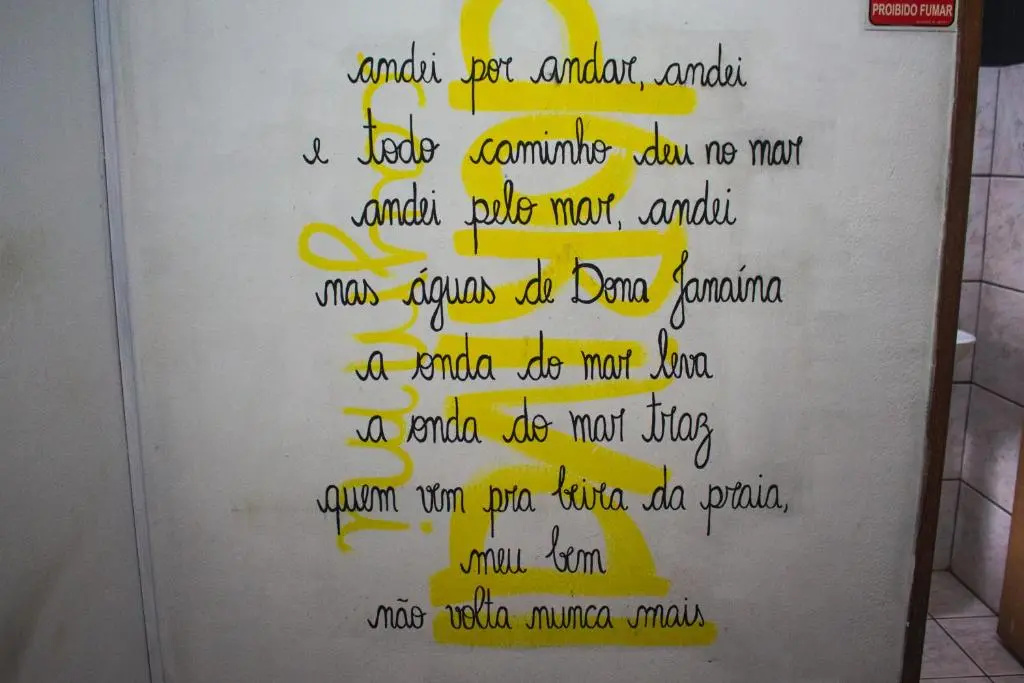 PROIBIDO FUMAR
andei por andar, andei
e todo caminho deu no mar
andei pelo mar, andei
nas águas de Dona Janaína
a onda do mar leva
a onda do mar traz
quem vem pra beira da praia,
meu bem
não volta nunca mais